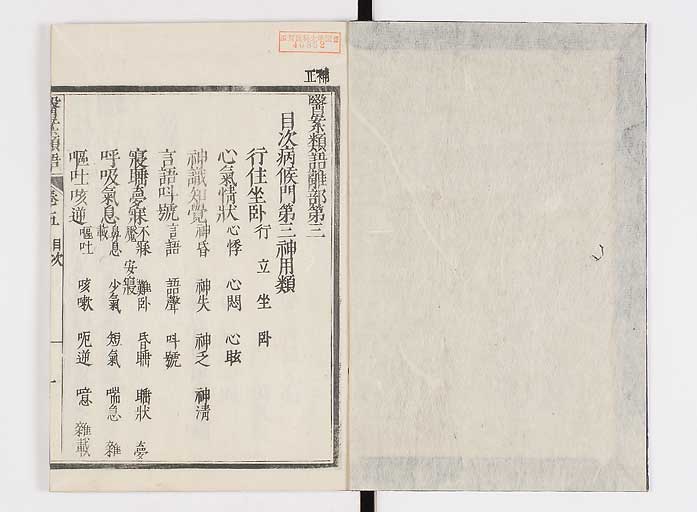 補正
醫案類語離部第三
目次病候門第三神用類
行住坐臥 行 立 坐 臥
心氣情狀 心悸 心悶 心眩
神識知覺 神昏 神失 神乏 神清
言語呌號 言語 語聲 呌號
寢聴夢寐 不寐 安寢 難臥 昏聴 聴狀 夢
魘
呼吸氣息 鼻息 少氣 短氣 喘急 雜
載
嘔吐咳逆 嘔吐 咳嗽 呃逆 噫 雜載
醫案類語 卷之五 目次 一
46852